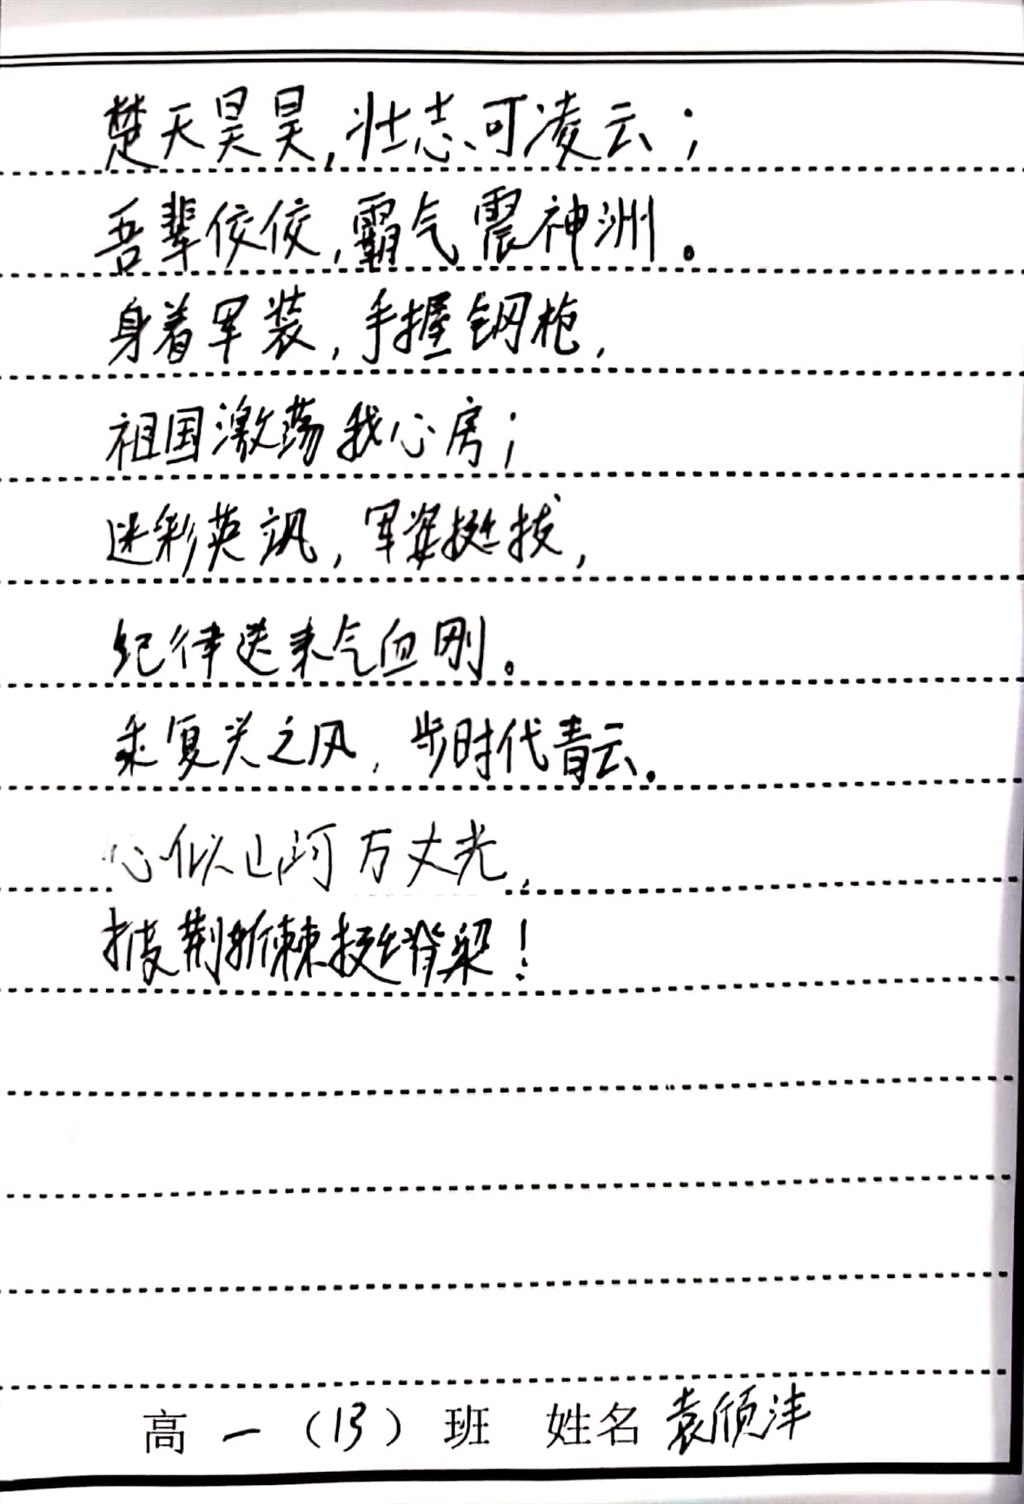 楚天昊昊,壮志可凌云;
吾辈佼佼,霸气震神洲。
身着军装,手握钢枪,
祖国激荡我心房;
迷彩英飒,军姿挺拔,
纪律送来气血刚。
乘复兴之风,步时代青云。
心似山河万丈光,
披荆折棘挺脊梁!
高一(13)班 姓名 袁颀沣